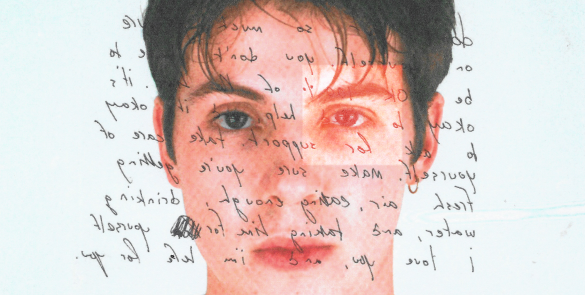 do so much
on yourself. you don't to
be OK of it's
okay to help okay
to ask for support. take care of
yourself. make sure you're getting
fresh air, eating enough, drinking
water, and taking time for yourself
i love you, and i'm here for you.